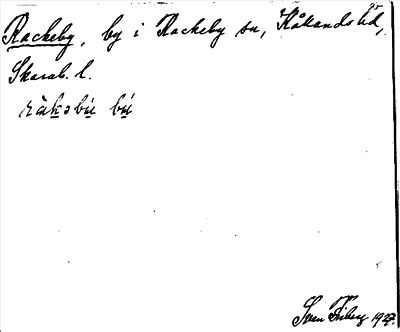 Rackeby, by i Rackeby sn, Kålands hd,
Skarab. l.
ràkəbù̱ bú̱
Sven Friberg 1927.